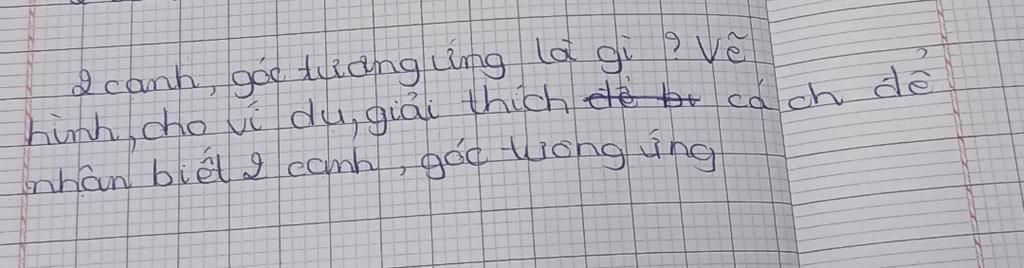 2 cạnh, góc tương ứng là gì? Vẽ
hình, cho ví dụ, giải thích cách để
nhận biết 2 cạnh, góc tương ứng